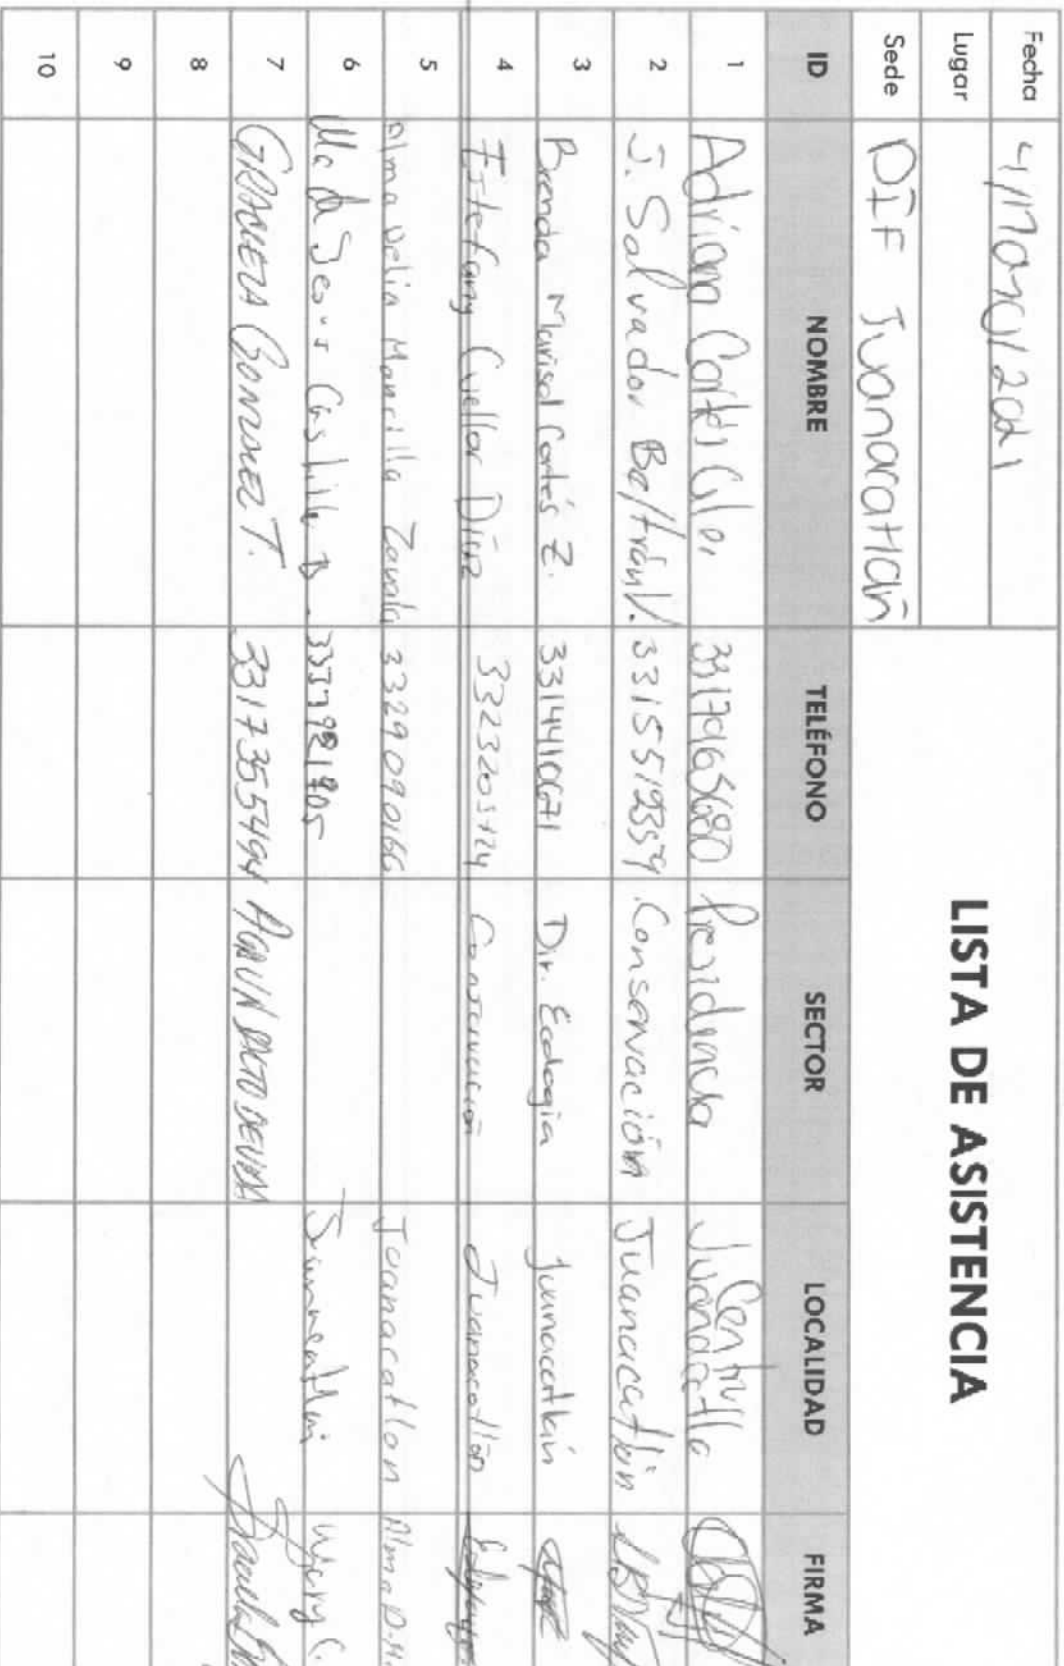 LISTA DE ASISTENCIA
Fecha 4/Marzo/2021
Lugar
Sede DIF Juanacatlán
ID NOMBRE TELÉFONO SECTOR LOCALIDAD FIRMA
1 Adriana Cortés 3317965680 Presidencia Centro Juanacatla
2 J. Salvador Beltrán V. 3315512359 Conservación Juanacatlán
3 Brenda Marisol Cortés Z. 3314410671 Dir. Ecología Juanacatlán
4 Estefany Cuellar Díaz 3323205124 Conservación Juanacatlán
5 Alma Delia Mancilla Zavala 3329090166 Juanacatlan Alma D.M.
6 Ma de Jesus Castillo Juanacatlán Mary C.
7 GRACIELA GONZALEZ T. 3317355494
8
9
10